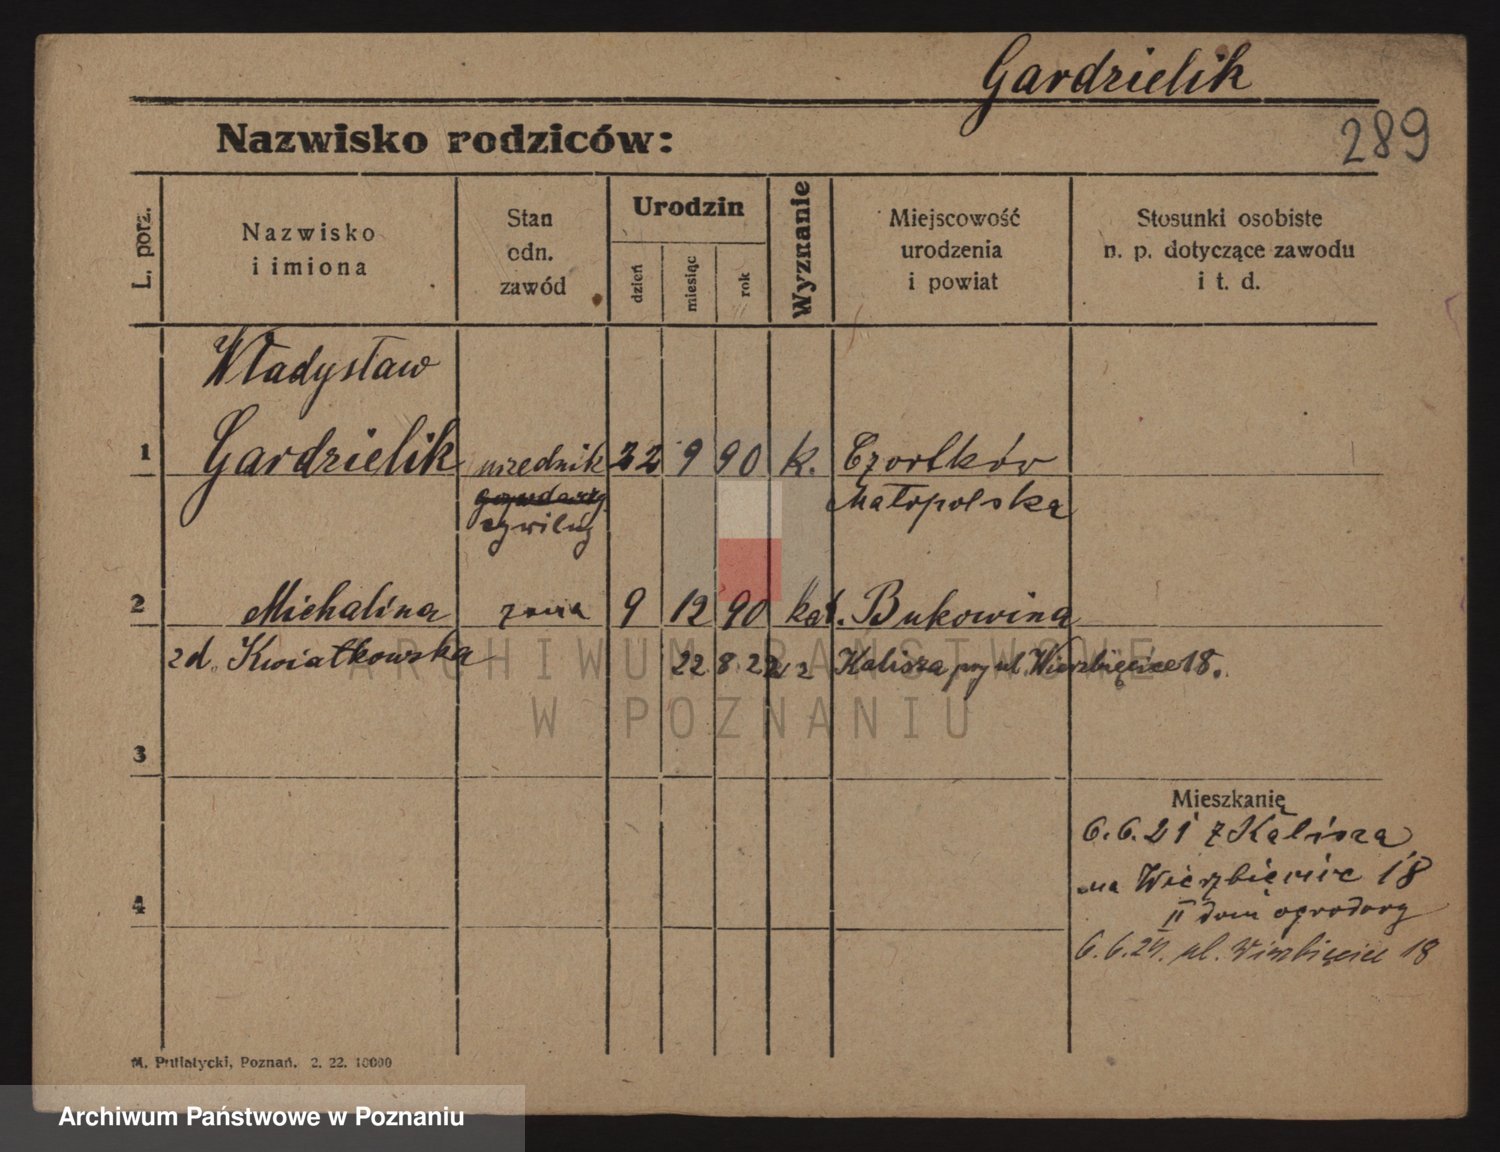 Gardzielik
289
Nazwisko rodziców:
L. porz.
Nazwisko
i imiona
Stan
odn.
zawód
Urodzin
dzień
miesiąc
rok
Wyznanie
Miejscowość
urodzenia
i powiat
Stosunki osobiste
n. p. dotyczące zawodu
i t. d.
Władysław
1 Gardzielik urzednik 22 9 90 k. Czortków
cywilny Małopolska
2 Michalina żona 9 12 90 kat. Bukowina
zd. Kwiatkowska 22 8 22 z Kalisza przy ul. Wierzbięcice 18.
3
Mieszkanie
6.6.21 z Kalisza
na Wierzbięcice 18
4
II dom ogrodowy
6.6.24. ul. Wierzbięcice 18
M. Putiatycki, Poznań. 2. 22. 10000
ARCHIWUM PAŃSTWOWE
W POZNANIU
Archiwum Państwowe w Poznaniu